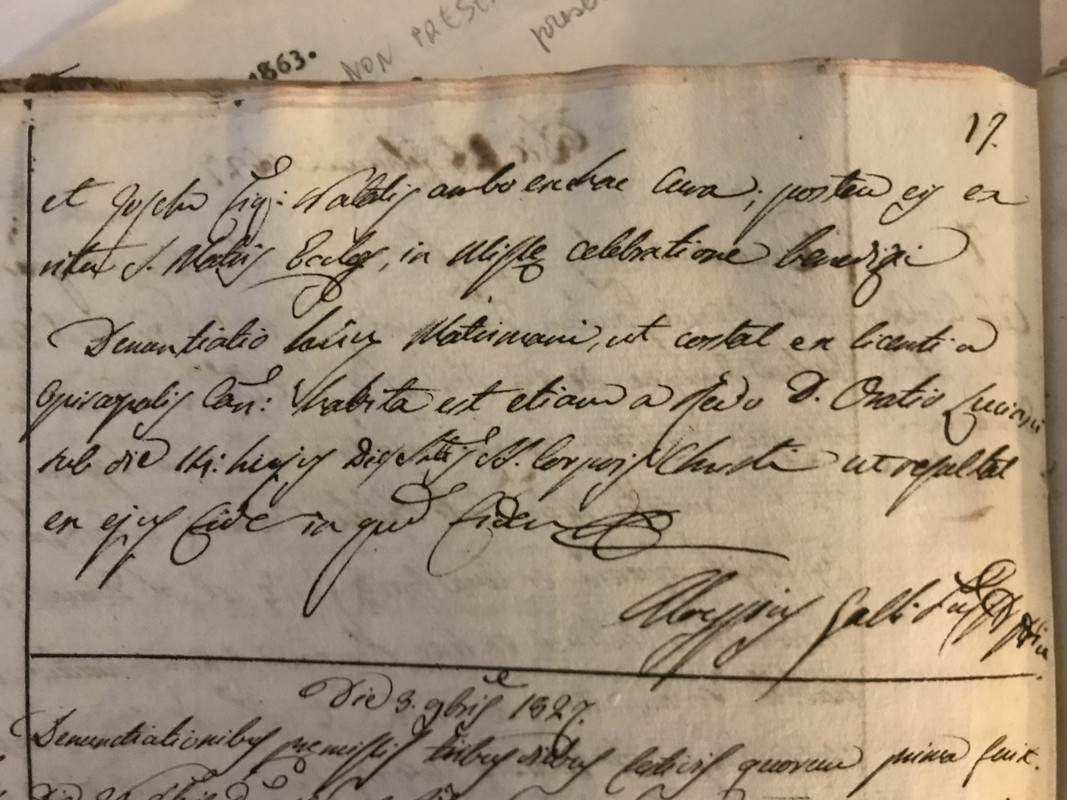 1863.
NON PRESEN
prese
17.
et Joseph fig: Natalis ambo ex hac Cura; postea eis ex
ritu S. Matris Eccles, in Misse celebratione benedixi
Denuntiatio hujus Matrimonii, ut costat ex licentia
Episcopalis Can: habita est etiam a Revdo D. Oratio
sub die 14: hujus Die SS. Corporis Christi ut resultat
ex ejus fide in quor fidem
Aloysius Galli
Die 3. 9bris 1827.
Denunctiationibus premissis tribus diebus festivis quorum prima fuit